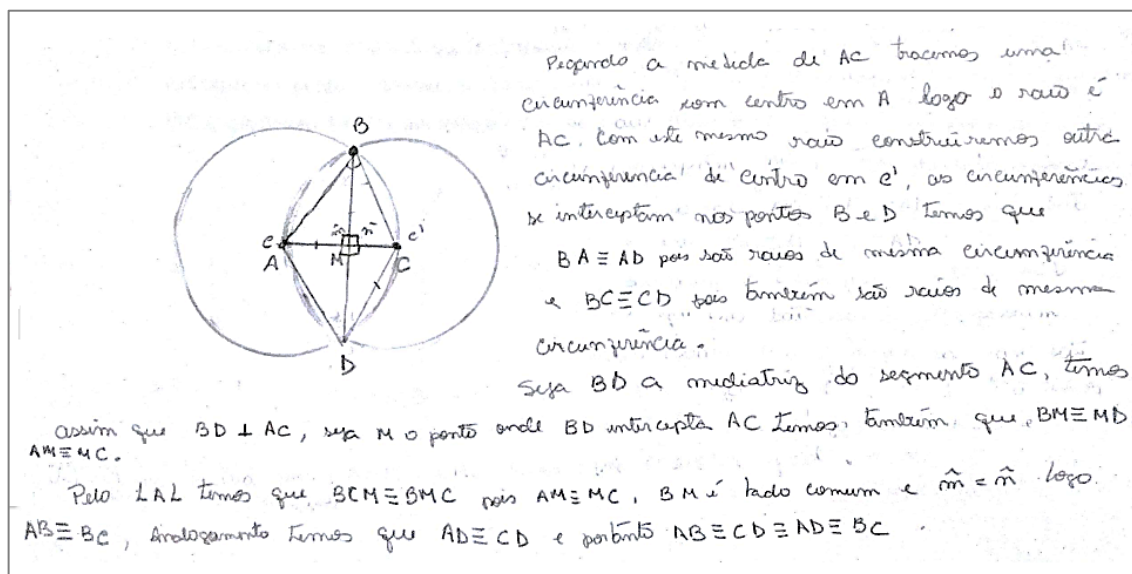 Pegando a medida de AC tracemos uma
circunferência com centro em A logo o raio é
AC. Com este mesmo raio construiremos outra
circunferencia de centro em C', as circunferências
se interceptam nos pontos B e D temos que
BA ≡ AD pois são raios de mesma circunferência
e BC ≡ CD pois também são raios de mesma
circunferência.
Seja BD a mediatriz do segmento AC, temos
assim que BD ⊥ AC, seja M o ponto onde BD intercepta AC temos, também, que BM ≡ MD
AM ≡ MC.
Pelo LAL temos que BCM ≡ BMC pois AM ≡ MC, BM é lado comum e m̂ = n̂ logo
AB ≡ BC, Analogamento temos que AD ≡ CD e portanto AB ≡ CD ≡ AD ≡ BC.
B
C
A
m̂
n̂
M
C'
C
D